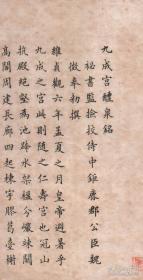 九成宮醴泉銘
秘書監撿挍侍中鉅鹿郡公臣魏
徵奉勅撰
維貞觀六年孟夏之月皇帝避暑乎
九成之宮此則随之仁壽宮也冠山
抗殿絕壑爲池跨水架楹分巖竦闕
高閣周建長廊四起棟宇膠葛臺榭